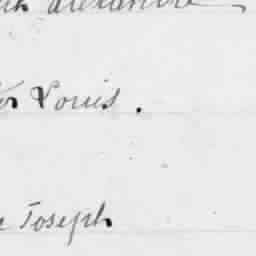 alexandre
Louis .
Joseph